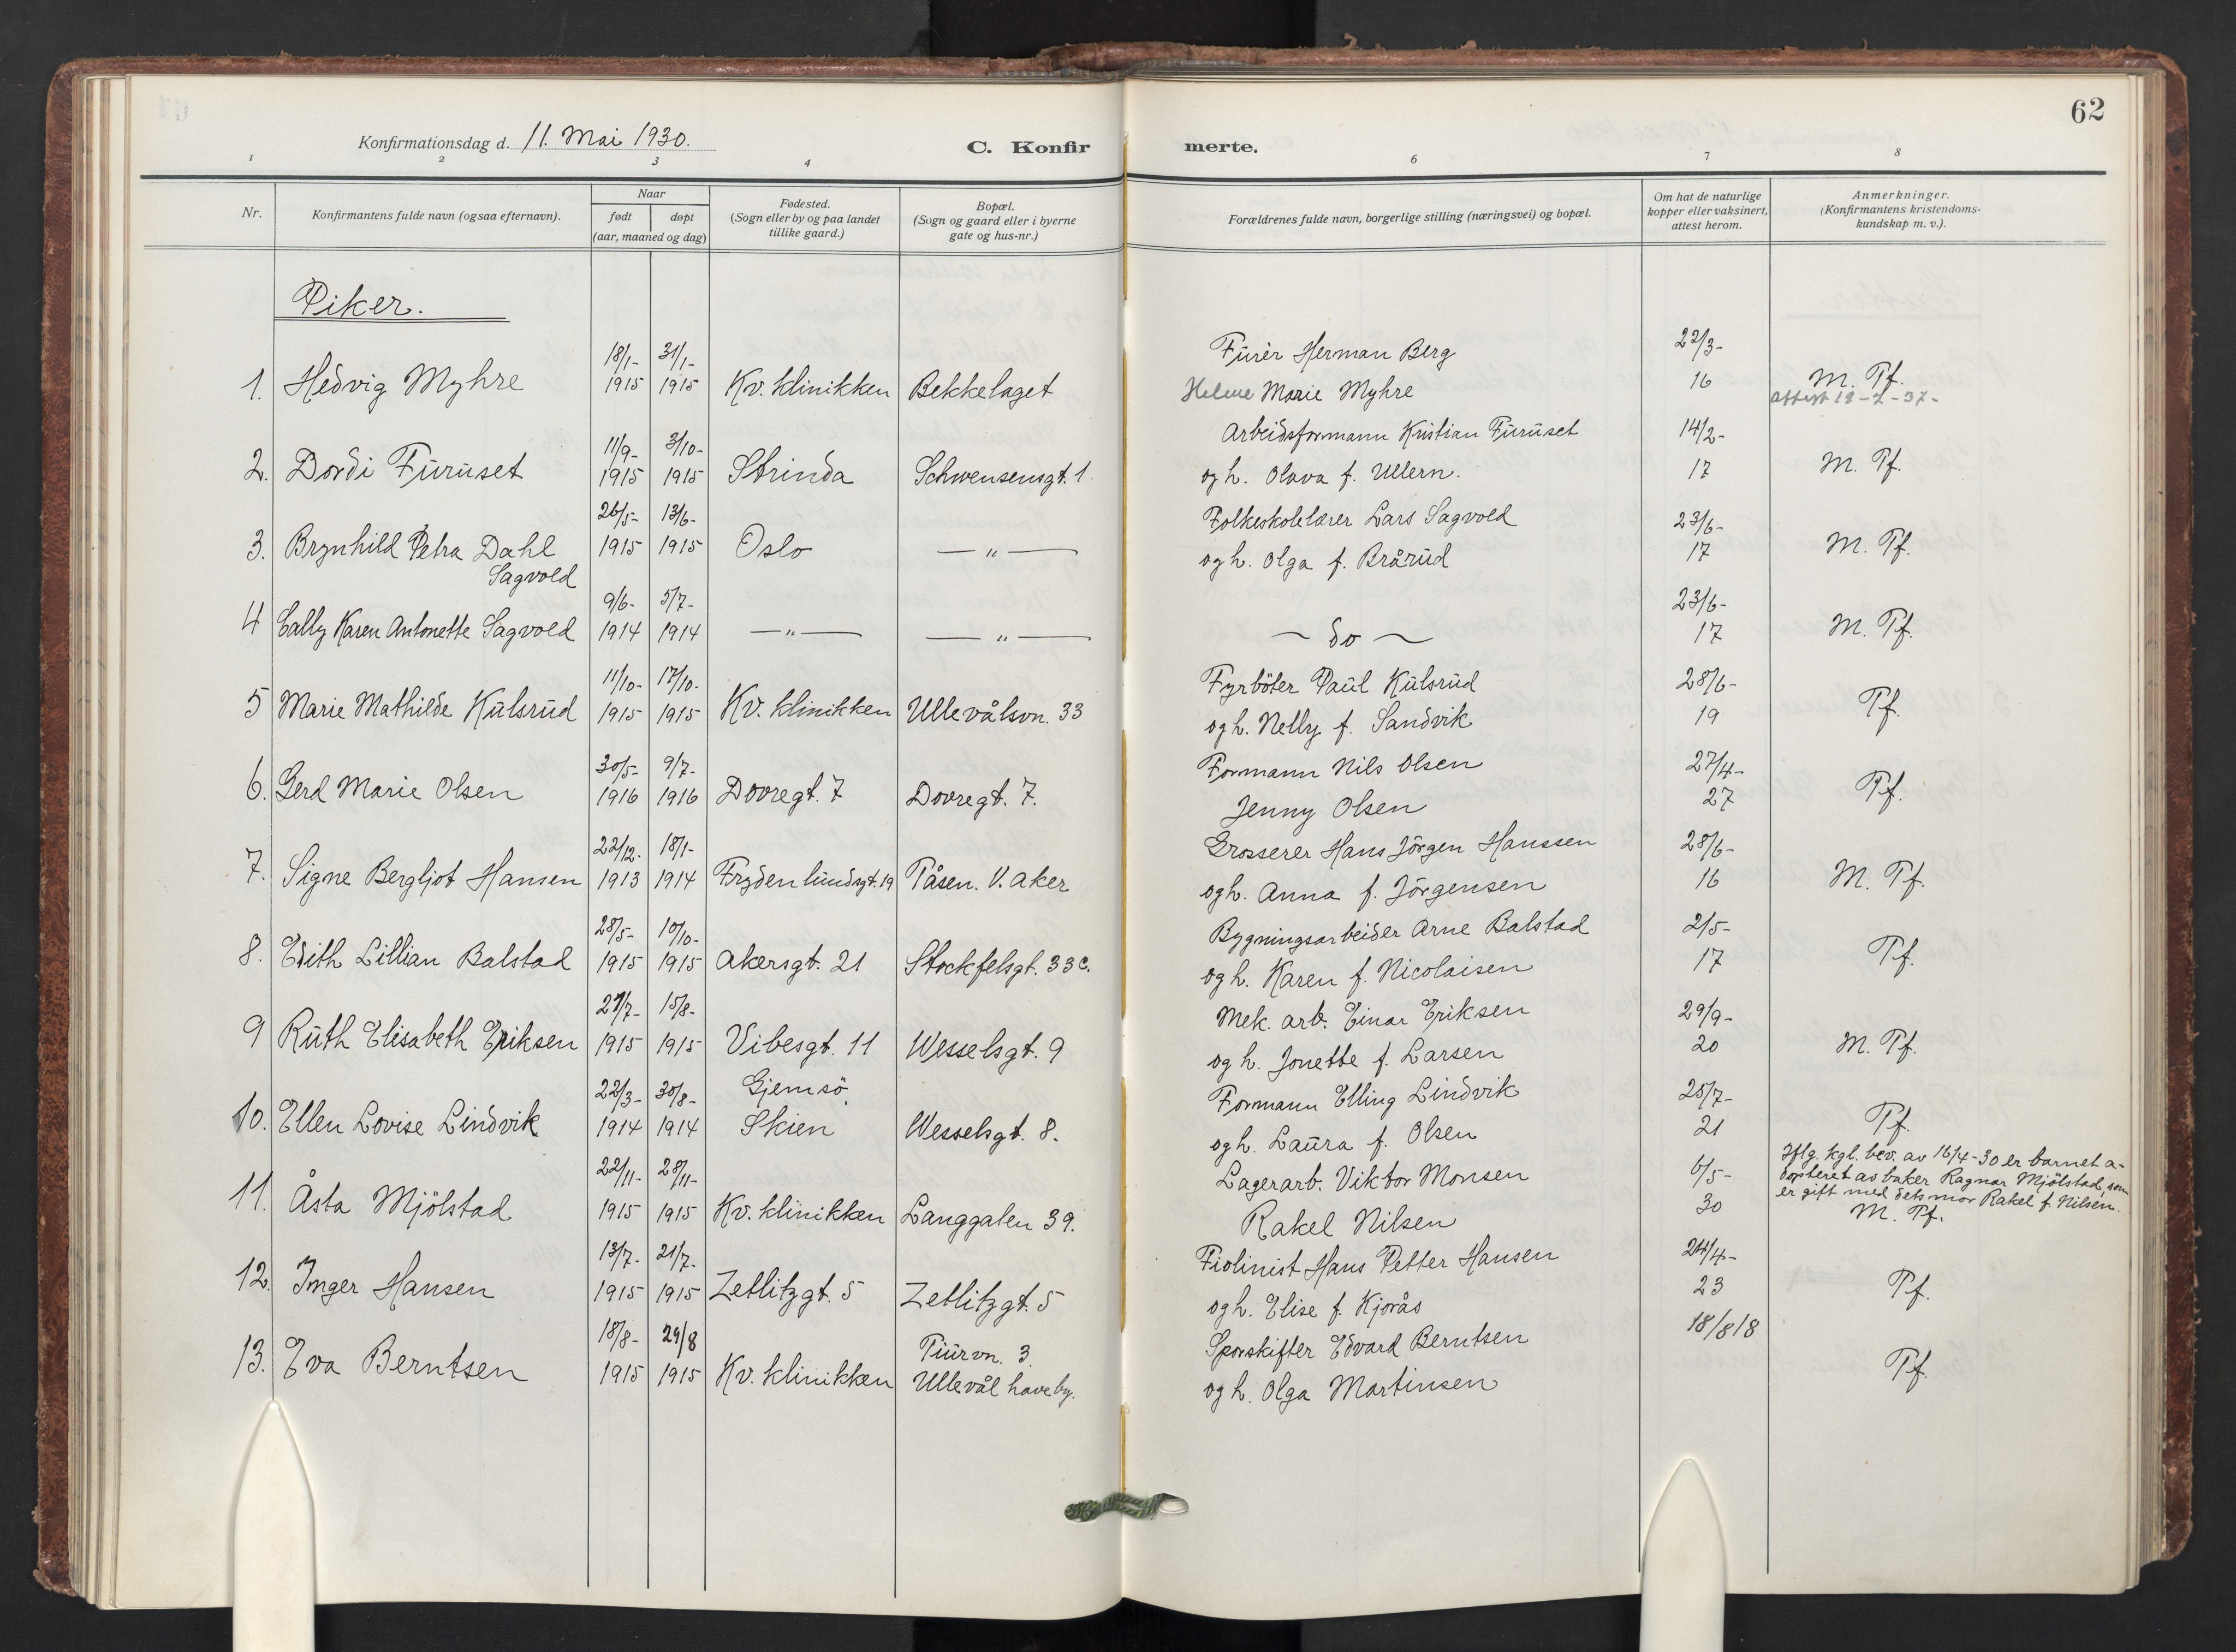 62
Konfirmationsdag d. 11. Mai 1930.
C. Konfir
merte.
1 2 3 4 6 7 8
Nr.
Konfirmantens fulde navn (ogsaa efternavn).
Naar
født døpt
(aar, maaned og dag)
Fødested.
(Sogn eller by og paa landet
tillike gaard.)
Bopæl.
(Sogn og gaard eller i byerne
gate og hus-nr.)
Forældrenes fulde navn, borgerlige stilling (næringsvei) og bopæl.
Om hat de naturlige
kopper eller vaksinert,
attest herom.
Anmerkninger.
(Konfirmantens kristendoms-
kundskap m. v.).
Piker.
18/1- 31/1- Furér Herman Berg 22/3-
1. Hedvig Myhre 1915 1915 Kv. klinikken Bekkelaget Helene Marie Myhre 16 M. Pf.
attest 12-2-37-
11/9- 3/10- Arbeidsformann Kristian Furuset 14/2-
2. Dordi Furuset 1915 1915 Strinda Schwensensgt. 1. og h. Olava f. Ullern. 17 M. Pf.
26/5- 13/6- Folkeskolelærer Lars Sagvold 23/6-
3. Brynhild Petra Dahl 1915 1915 Oslo — " — og h. Olga f. Brårud 17 M. Pf.
Sagvold
9/6- 5/7- 23/6-
4 Cally Karen Antonette Sagvold 1914 1914 — " — — " — ~ do ~ 17 M. Pf.
11/10- 17/10- Fyrböter Paul Kulsrud 28/6-
5 Marie Mathilde Kulsrud 1915 1915 Kv. klinikken Ullevålsvn. 33 og h. Nelly f. Sandvik 19 Pf.
30/5- 9/7- Formann Nils Olsen 27/4-
6. Gerd Marie Olsen 1916 1916 Dovregt. 7 Dovregt. 7. Jenny Olsen 27 Pf.
22/12- 18/1- Grosserer Hans Jörgen Hanssen 28/6-
7. Signe Bergljot Hansen 1913 1914 Frydenlundsgt. 19 Tåsen. V. Aker og h. Anna f. Jörgensen 16 M. Pf.
28/5- 10/10- Bygningsarbeider Arne Balstad 2/5-
8. Edith Lillian Balstad 1915 1915 Akersgt. 21 Stockfelsgt. 33 c. og h. Karen f. Nicolaisen 17 Pf.
27/7- 15/8- Mek. arb. Einar Eriksen 29/9-
9 Ruth Elisabeth Eriksen 1915 1915 Vibesgt. 11 Wesselsgt. 9 og h. Jonette f. Larsen 20 M. Pf.
22/3- 30/8- Gjemsö. Formann Elling Lindvik 25/7-
10. Ellen Lovise Lindvik 1914 1914 Skien Wesselsgt. 8. og h. Laura f. Olsen 21 Pf.
22/11- 28/11- Lagerarb. Viktor Monsen 6/5- Iflg. kgl. bev. av 16/4-30 er barnet a-
doptert av baker Ragnar Mjölstad, som
er gift med dets mor Rakel f. Nilsen.
11. Åsta Mjölstad 1915 1915 Kv. klinikken Langgaten 39. Rakel Nilsen 30 M. Pf.
13/7- 21/7- Fiolinist Hans Petter Hansen 24/4-
12. Inger Hansen 1915 1915 Zetlitzgt. 5 Zetlitzgt. 5 og h. Elise f. Kjorås 23 Pf.
18/8- 29/8 Tiurvn. 3. Sporskifter Edvard Berntsen 18/8 18
13. Eva Berntsen 1915 1915 Kv. klinikken Ullevål haveby. og h. Olga Martinsen Pf.